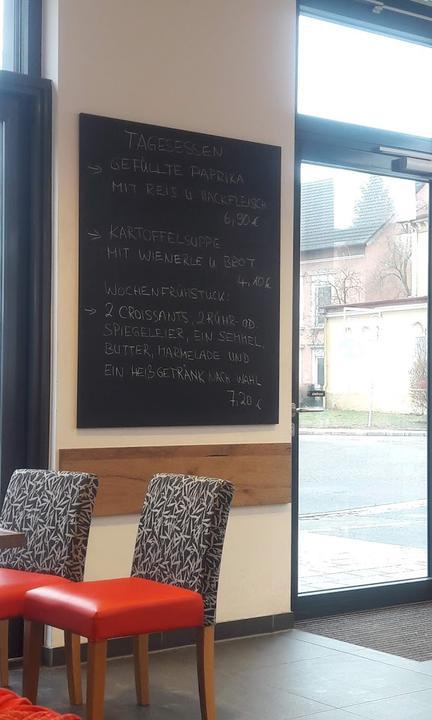 TAGESESSEN
→ GEFÜLLTE PAPRIKA
MIT REIS U HACKFLEISCH
6,90 €
→ KARTOFFELSUPPE
MIT WIENERLE U BROT
4,10 €
WOCHENFRÜHSTÜCK:
→ 2 CROISSANTS, 2 RÜHR- OD.
SPIEGELEIER, EIN SEMMEL,
BUTTER, MARMELADE UND
EIN HEIßGETRÄNK NACH WAHL
7,20 €